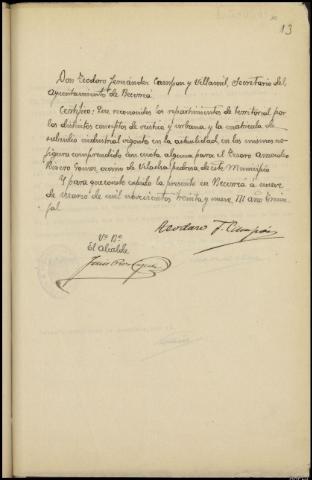 13
Don Teodoro Fernández Campón y Villamil, Secretario del
Ayuntamiento de Becerreá
Certifico: Que reconocidos los repartimientos de territorial por
los distintos conceptos de rústica y urbana y la matrícula de
subsidio industrial vigente en la actualidad, en los mismos no
figura comprendido con cuota alguna para el Tesoro
Rivero vecino de de este Municipio
Y para que conste expido la presente en Becerreá a nueve
de de mil novecientos treinta y nueve, III Año Triun-
fal
Vº Bº
El Alcalde,
Teodoro F. Campón